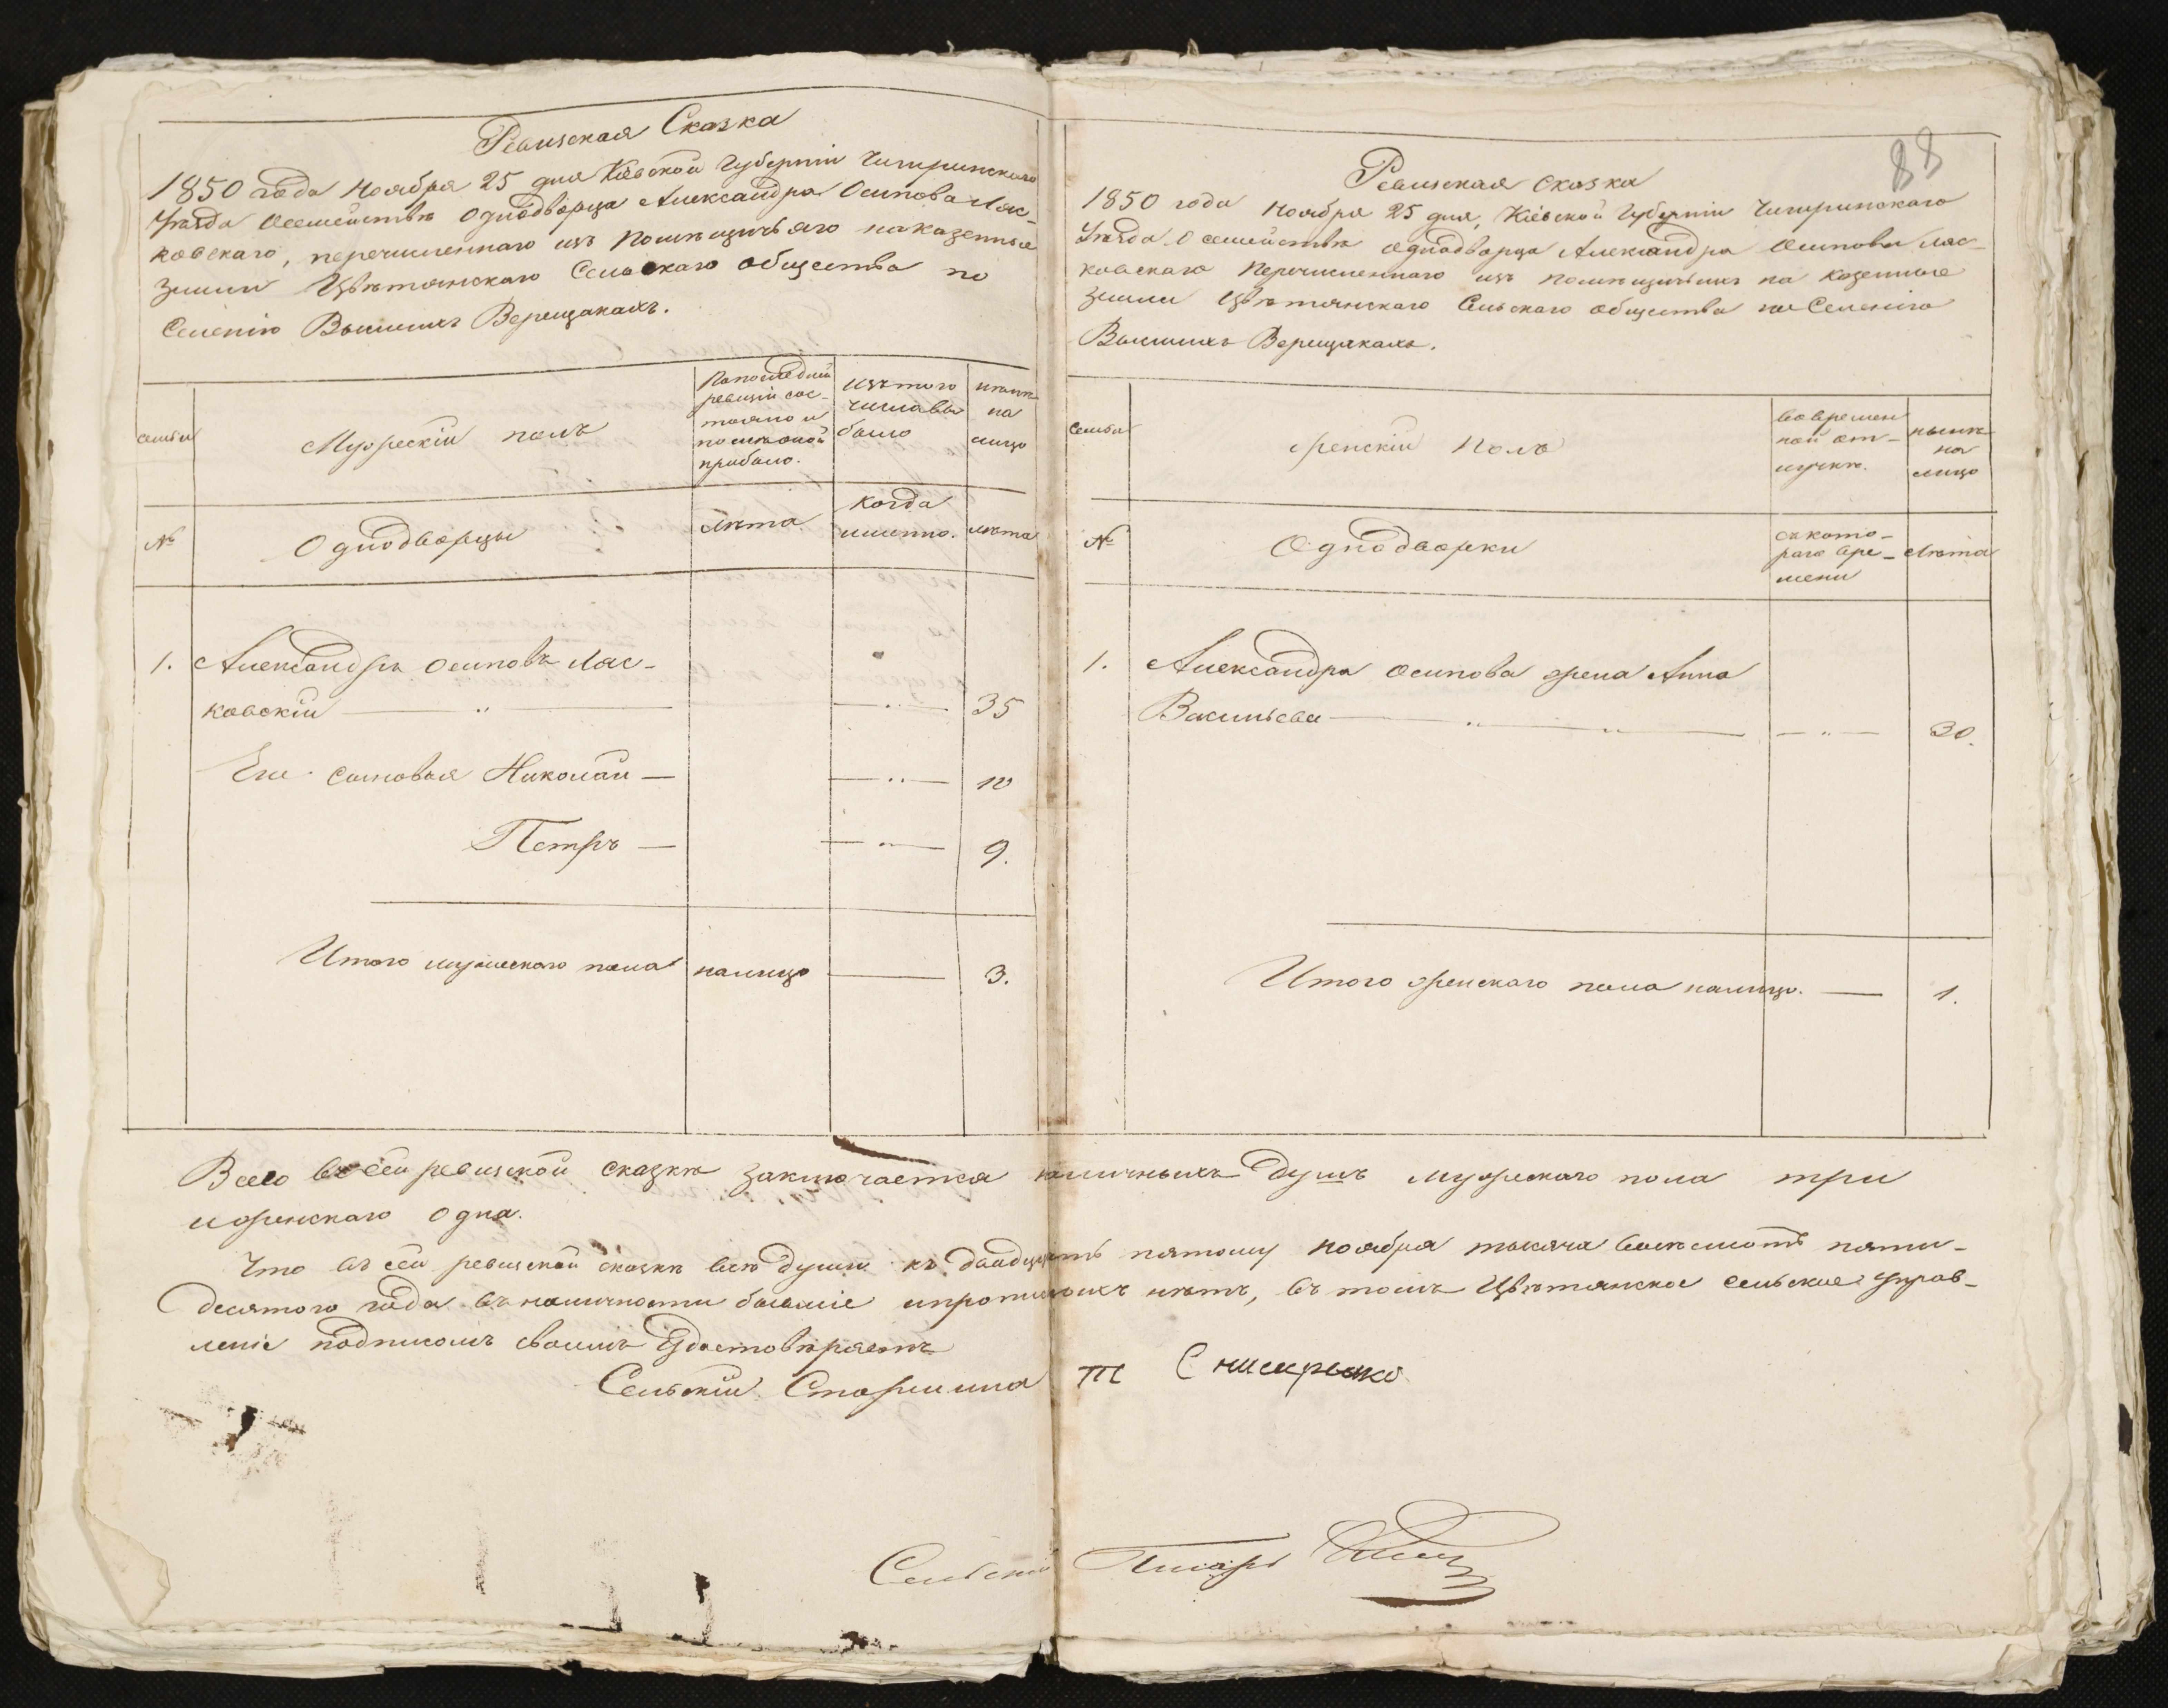 Ревизская Сказка
1850 года Ноября 25 дня Кіевской Губерніи Чигиринскаго
Уѣзда Осемействѣ Однодворца Александра Осипова Ляс-
ковскаго, перечисленнаго изъ помѣщичьяго наказенные
земли Цвѣтянскаго Сельскаго общества по
Селенію Вышшихъ Верещакахъ.
семьи
Мужескій полъ
Напоследней
ревизіи сос-
тояло и
послѣ оной
прибыло.
изътого
числавы
было
нынѣ
на
лицо
№
Однодворцы
лѣта
Когда
именно.
лѣта
1. Александръ Осиповъ Ляс-
ковскій — " — 35
Его сыновья Николай — 10
Петръ — 9.
Итого мужескаго пола налицо — 3.
88
Ревизская сказка
1850 года Ноября 25 дня, Кіевской Губерніи Чигиринскаго
Уѣзда О семействѣ однодворца Александра Осипова Ляс-
ковскаго Перечисленнаго изъ помѣщичьихъ на казенные
земли Цвѣтянскаго Сельскаго общества по Селенію
Вышшихъ Верещакахъ.
Семьи
Женскій Полъ
вовремен
ной от-
лучкѣ.
нынѣ
на
лицо
№
Однодворки
съкото-
раго вре-
мени
Лѣта
1. Александра Осипова жена Анна
Васильева — 30.
Итого женскаго пола налицо. — 1.
Всего въ сей ревизской сказкѣ заключается наличныхъ душъ мужескаго пола три
иженскаго одна.
Что въ сей ревизской сказкѣ всѣ души къ двадцать пятому ноября тысяча восемьсотъ пяти-
десятого года въ наличности бывшіе ипрописныхъ нѣтъ, въ томъ Цвѣтянское сельское Управ-
леніе подписомъ своимъ Удостовѣряетъ
Сельскій Старшина
Сельскій Писарь